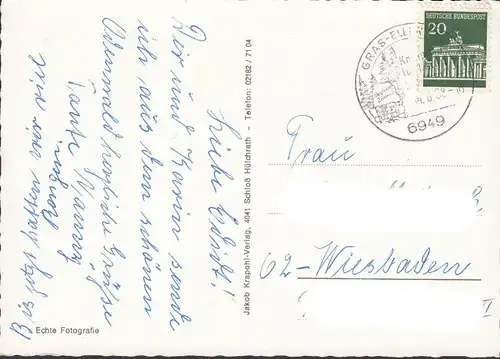 Liebe Edith!
Dir und Karin sende
ich aus dem schönen
Odenwald herzliche Grüße
Tante Nanny
Bis jetzt hatten wir nur
Regen.
Echte Fotografie
Jakob Krapohl-Verlag, 4041 Schloß Hülchrath - Telefon: 02182 / 71 04
DEUTSCHE BUNDESPOST
20
GRAS-ELL
6949
Frau
62-Wiesbaden